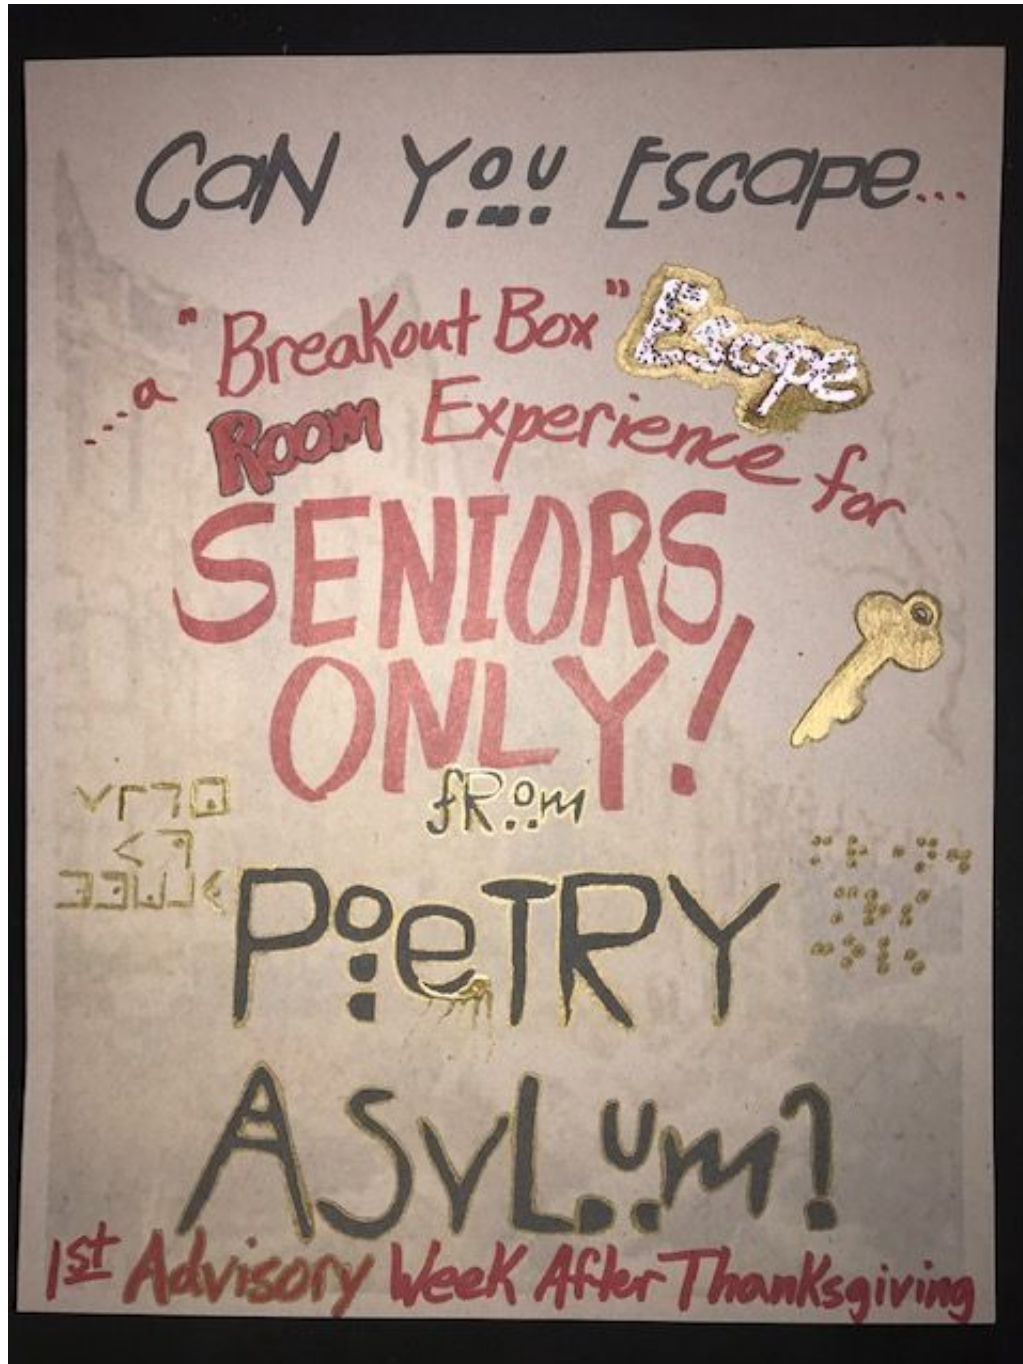 CaN You Escape...
...a "Breakout Box" Escape
Room Experience for
SENIORS
ONLY!
fRom
PoeTRY
ASyLum?
1st Advisory Week After Thanksgiving